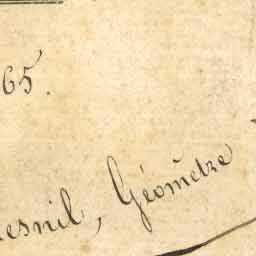 65.
esnil, Géomètre